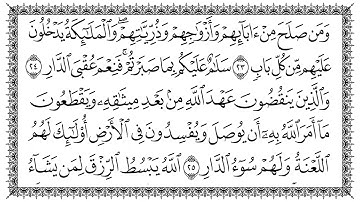 وَمَن صَلَحَ مِنْ ءَابَآئِهِمْ وَأَزْوَٰجِهِمْ وَذُرِّيَّـٰتِهِمْ ۖ وَٱلْمَلَـٰٓئِكَةُ يَدْخُلُونَ
عَلَيْهِم مِّن كُلِّ بَابٍ ٢٣ سَلَـٰمٌ عَلَيْكُم بِمَا صَبَرْتُمْ ۚ فَنِعْمَ عُقْبَى ٱلدَّارِ ٢٤
وَٱلَّذِينَ يَنقُضُونَ عَهْدَ ٱللَّهِ مِنۢ بَعْدِ مِيثَـٰقِهِۦ وَيَقْطَعُونَ
مَآ أَمَرَ ٱللَّهُ بِهِۦٓ أَن يُوصَلَ وَيُفْسِدُونَ فِى ٱلْأَرْضِ ۙ أُو۟لَـٰٓئِكَ لَهُمُ
ٱللَّعْنَةُ وَلَهُمْ سُوٓءُ ٱلدَّارِ ٢٥ ٱللَّهُ يَبْسُطُ ٱلرِّزْقَ لِمَن يَشَآءُ